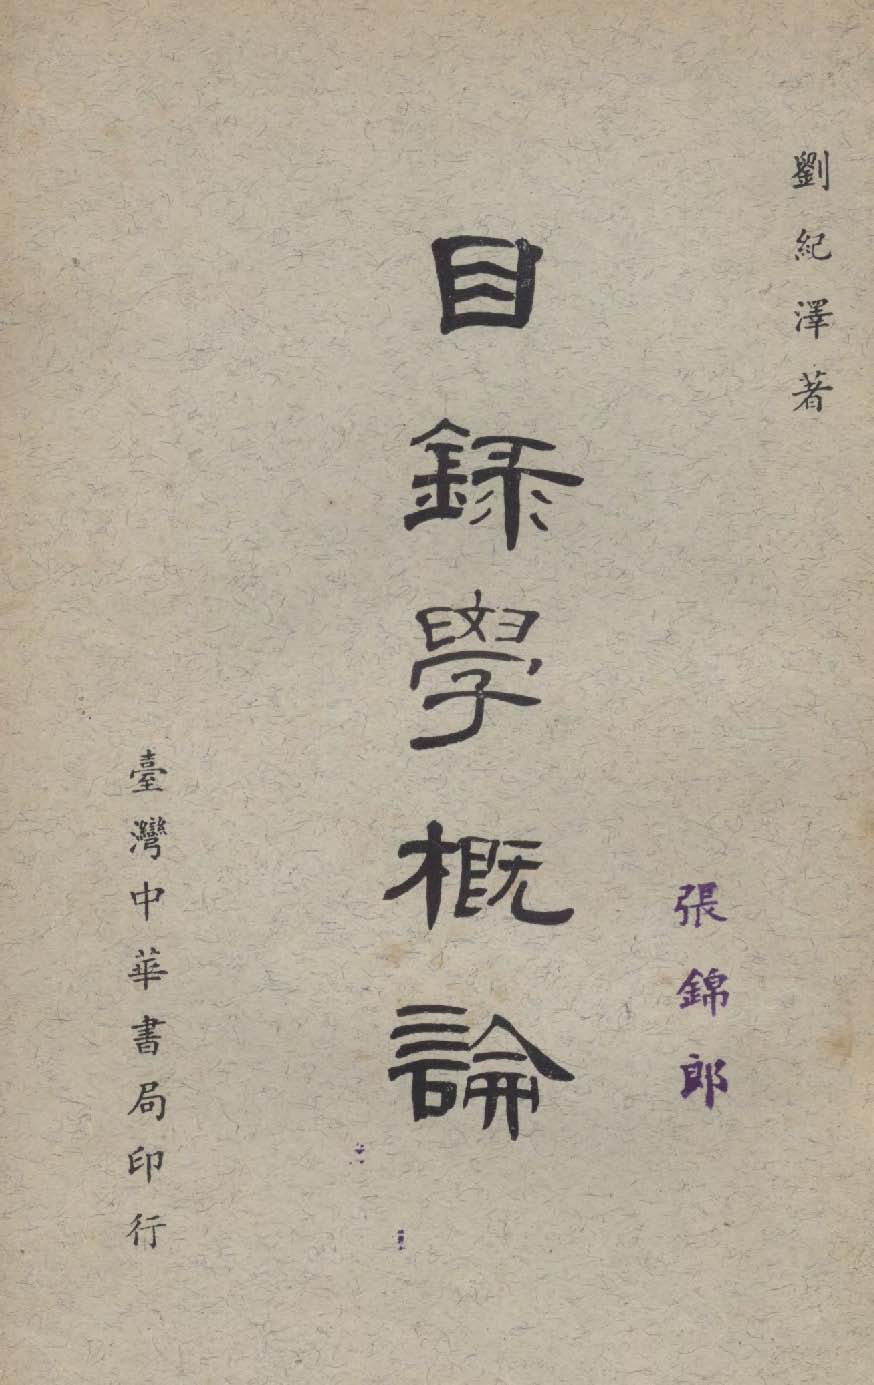 劉紀澤著
目録學概論
張錦郎
臺灣中華書局印行